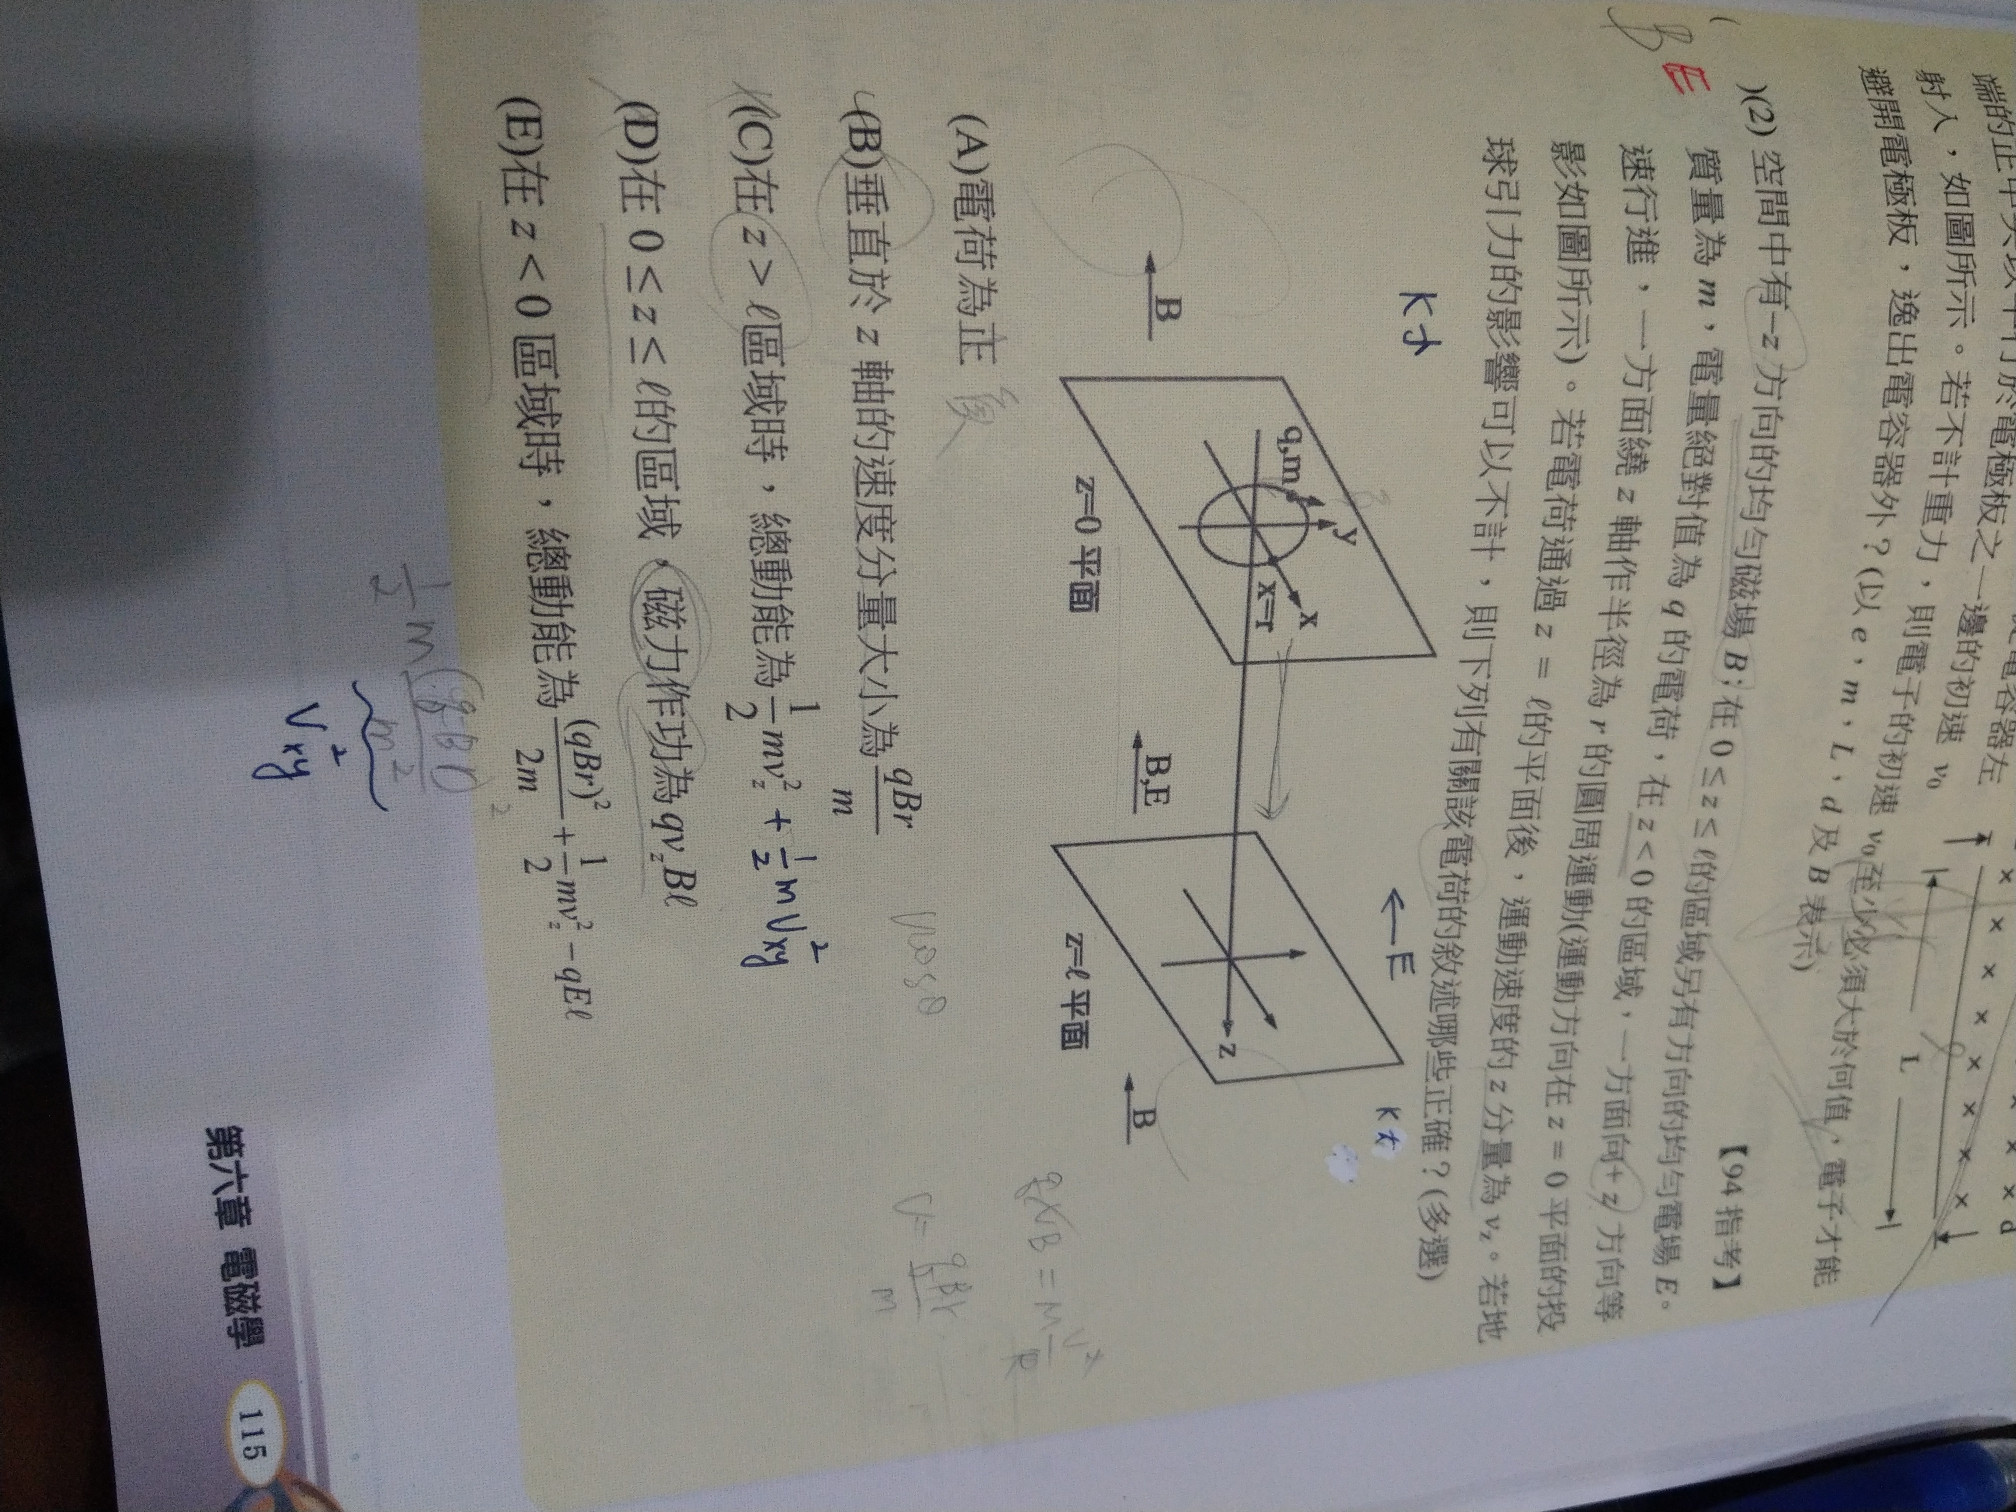 射入，如圖所示。若不計重力，則電子的初速 v₀ 至少必須大於何值，電子才能
避開電極板，逸出電容器外？(以 e，m，L，d 及 B 表示)
【94 指考】
L
d
B E
)(2) 空間中有-z 方向的均勻磁場 B；在 0 ≤ z ≤ ℓ的區域另有方向的均勻電場 E。
質量為 m，電量絕對值為 q 的電荷，在 z < 0 的區域，一方面向+ z 方向等
速行進，一方面繞 z 軸作半徑為 r 的圓周運動(運動方向在 z = 0 平面的投
影如圖所示)。若電荷通過 z = ℓ的平面後，運動速度的 z 分量為 v_z。若地
球引力的影響可以不計，則下列有關該電荷的敘述哪些正確？(多選)
K小
←E
K大
B
q,m
y
x
x=r
z=0 平面
B,E
z
z=ℓ 平面
B
(A)電荷為正 負
(B)垂直於 z 軸的速度分量大小為 qBr/m
(C)在 z > ℓ區域時，總動能為 1/2 mv_z² + 1/2 m V_xy²
(D)在 0 ≤ z ≤ ℓ的區域，磁力作功為 qv_zBℓ
(E)在 z < 0 區域時，總動能為 (qBr)²/2m + 1/2 mv_z² − qEℓ
Vcosθ
V = qBr/m
V_xy²
第六章 電磁學 115